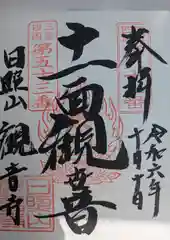 奉拝
令和六年
十月十日
十一面観世音
第五十三番
日照山
観音寺